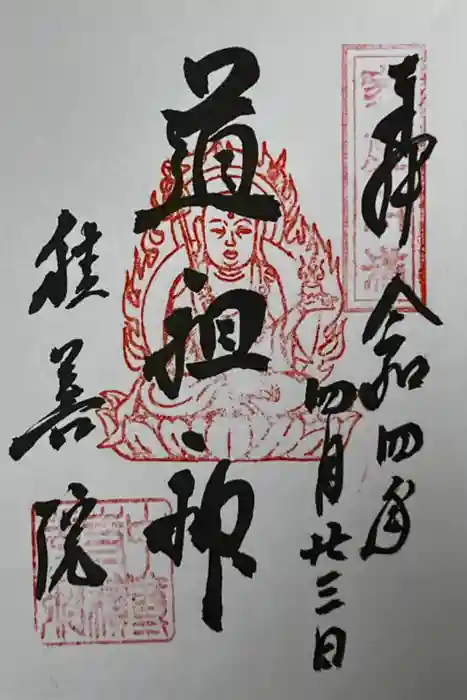 奉拝
令和四年
四月廿三日
道祖神
佳善院